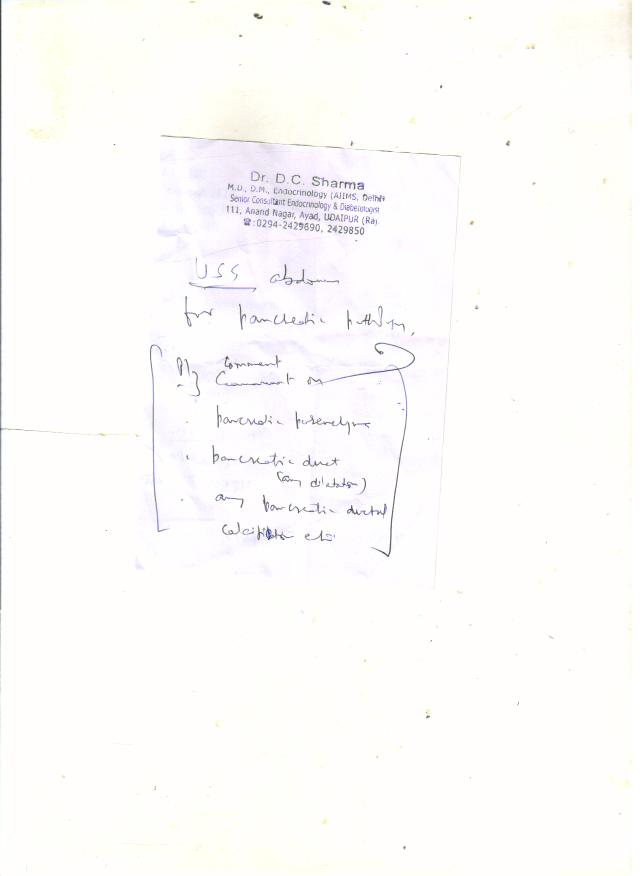 Dr. D.C. Sharma
M.D., D.M., Endocrinology (AIIMS, Delhi)
Senior Consultant Endocrinology & Diabetologist
111, Anand Nagar, Ayad, UDAIPUR (Raj)
☎:0294-2429690, 2429850
USS abdomen
for pancreatic pathology,
Pl
comment
Comment on
. pancreatic parenchyma
. pancreatic duct
(any dilatation)
. any pancreatic ductal
calcification etc